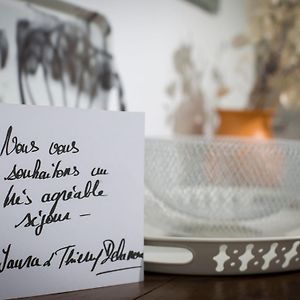 Nous vous
souhaitons un
très agréable
séjour -
Laura et Thierry